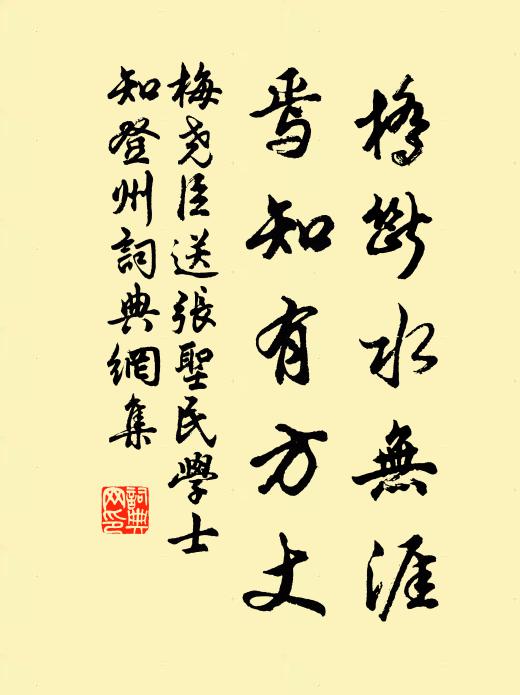 橋斷水無涯
焉知有方丈
梅尧臣送張聖民學士
知登州詞典網集
詞典網印